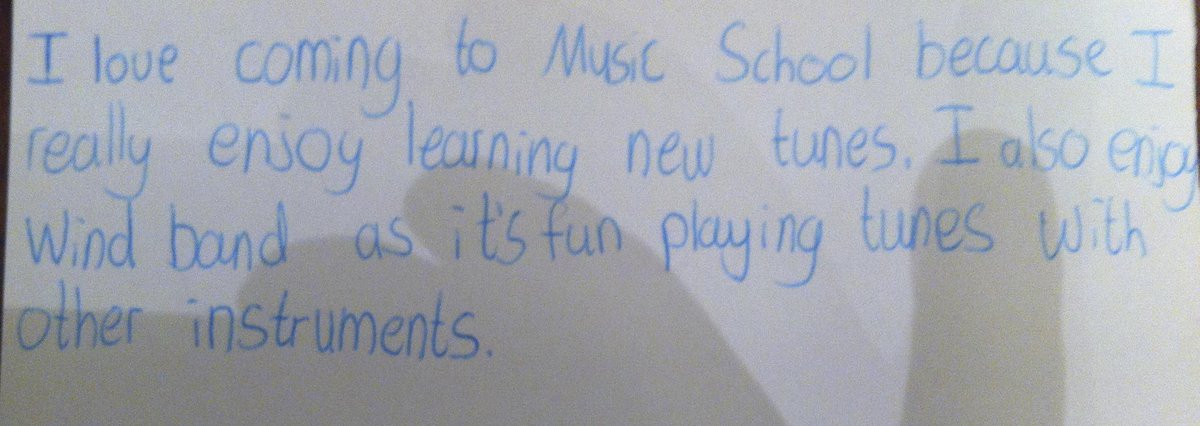 I love coming to Music School because I
really enjoy learning new tunes. I also enjoy
wind band as it's fun playing tunes with
other instruments.